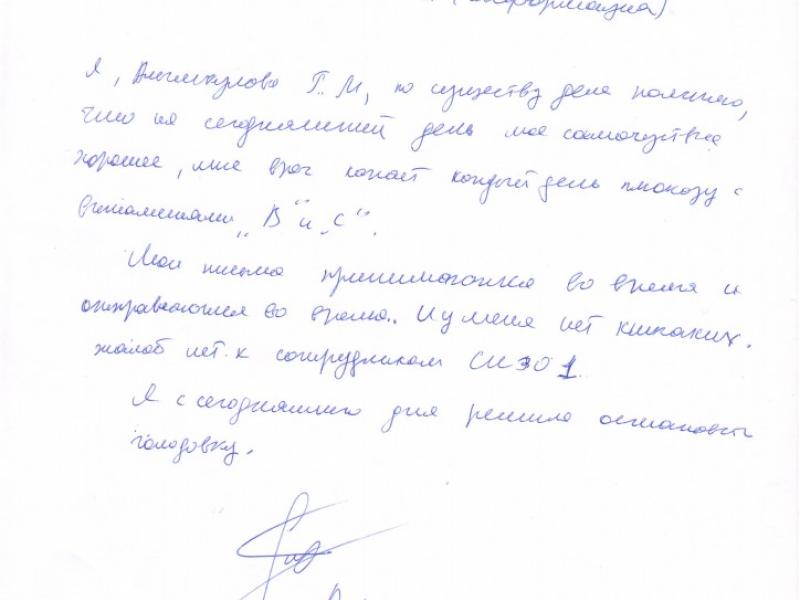 (информация)
Я, Алымкулова Г. М, по существу дела поясняю,
что на сегодняшний день мое самочувствие
хорошее, мне врач капает каждый день глюкозу с
витаминами „В" и „С".
Мои письма принимаются во время и
отправляются во время.. И у меня нет никаких.
жалоб нет. к сотрудникам СИЗО 1.
Я с сегодняшнего дня решила остановить
голодовку.